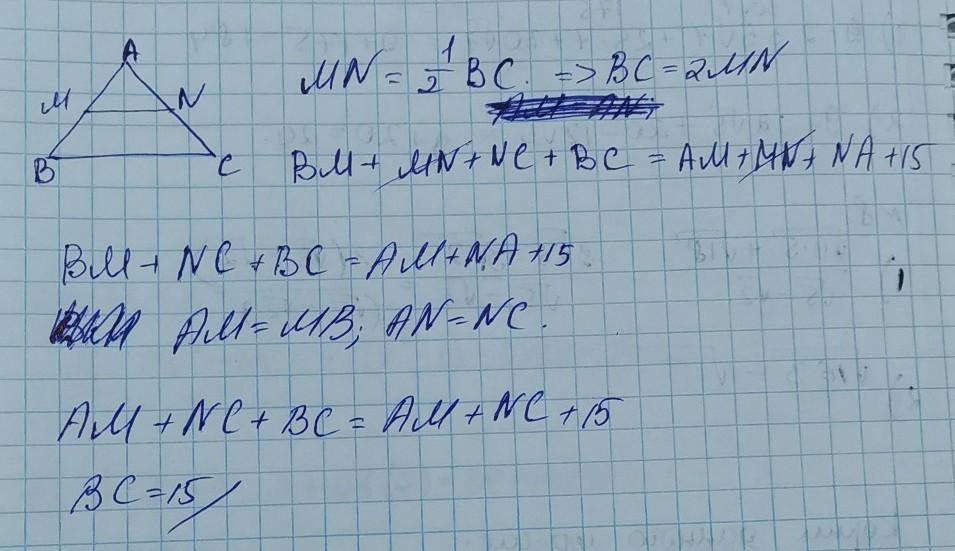 A
M N
B C
MN = 1/2 BC. => BC = 2MN
BM + MN + NC + BC = AM + MN + NA + 15
BM + NC + BC = AM + NA + 15
AM = MB; AN = NC.
AM + NC + BC = AM + NC + 15
BC = 15